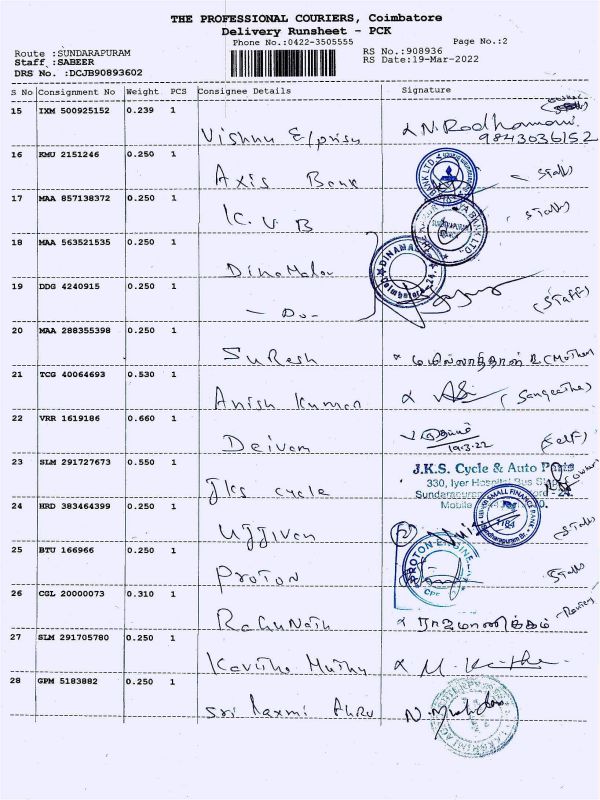 THE PROFESSIONAL COURIERS, Coimbatore
Delivery Runsheet - PCK
Phone No.:0422-3505555
Page No.:2
Route :SUNDARAPURAM
Staff :SABEER
DRS No. :DCJB90893602
RS No.:908936
RS Date:19-Mar-2022
S No Consignment No Weight PCS Consignee Details Signature
15 IXM 500925152 0.239 1
Vishnu E/prisu N. Radhamani
9843036152
16 KMU 2151246 0.250 1
Axis Bank (Staff)
17 MAA 857138372 0.250 1
K. V. B (Staff)
18 MAA 563521535 0.250 1
DinaMalar DINAMALAR
Coimbatore - 24
19 DDG 4240915 0.250 1
- Do - (Staff)
20 MAA 288355398 0.250 1
SuResh (Mother)
21 TCG 40064693 0.530 1
Anish Kumar (Sangeetha)
22 VRR 1619186 0.660 1
Deivam 19.3.22 (Self)
23 SLM 291727673 0.550 1
Jks cycle J.K.S. Cycle & Auto Parts
330, Iyer Hospital Bus St
Mobile
24 HRD 383464399 0.250 1
Ujjivan UJJIVAN SMALL FINANCE BANK
1184
Sundarapuram Br. (Staff)
25 BTU 166966 0.250 1
Proton PROTON ENGINE
CPE Staff
26 CGL 20000073 0.310 1
RaGuNath ராஜமாணிக்கம்
27 SLM 291705780 0.250 1
Kavitha Muthu
28 GPM 5183882 0.250 1
Sri Laxmi